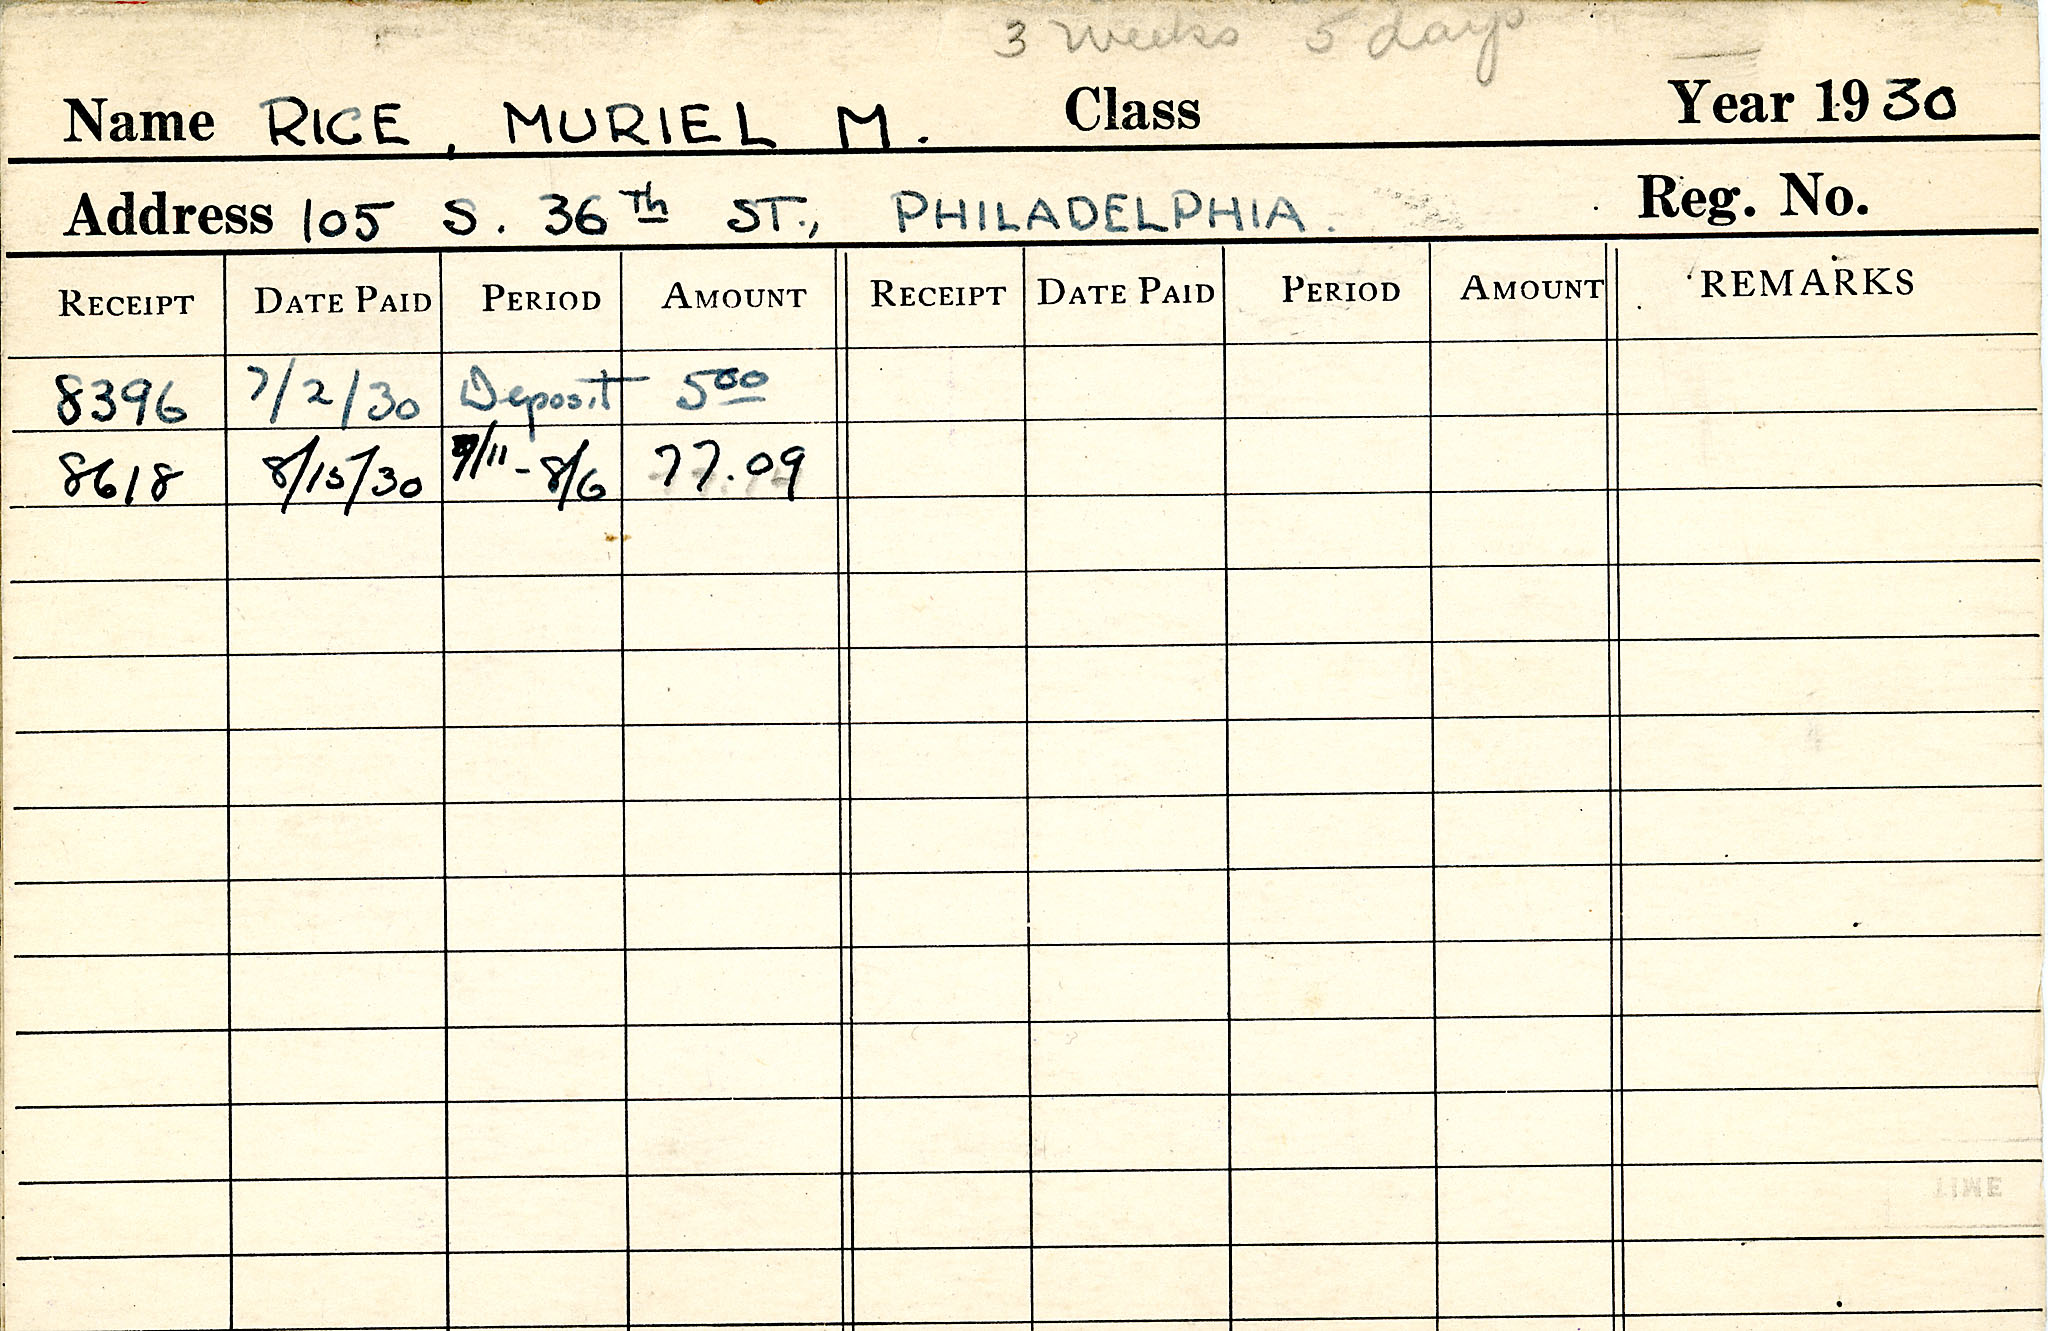 3 weeks 5 days
Name RICE, MURIEL M. Class Year 1930
Address 105 S. 36th ST., PHILADELPHIA. Reg. No.
RECEIPT DATE PAID PERIOD AMOUNT RECEIPT DATE PAID PERIOD AMOUNT REMARKS
8396 7/2/30 Deposit 5 00
8618 8/15/30 7/11 - 8/6 77.09
TIME